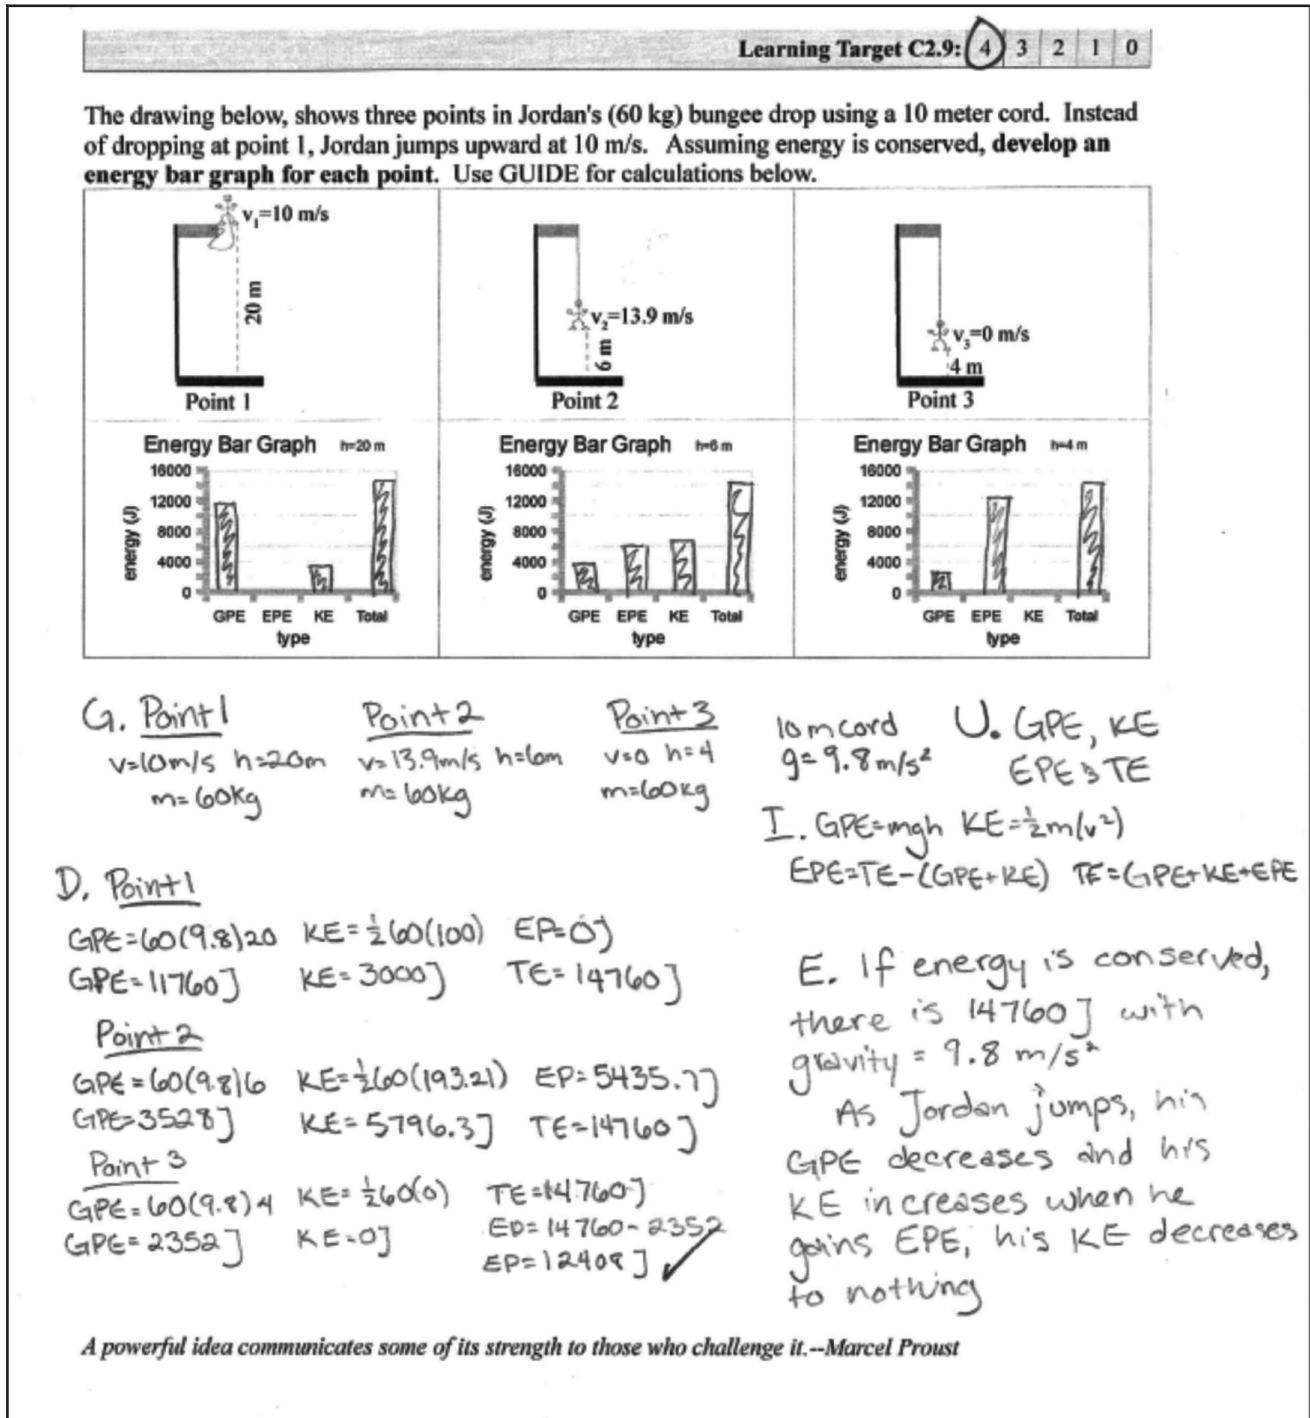 Learning Target C2.9: 4 3 2 1 0
The drawing below, shows three points in Jordan's (60 kg) bungee drop using a 10 meter cord. Instead
of dropping at point 1, Jordan jumps upward at 10 m/s. Assuming energy is conserved, develop an
energy bar graph for each point. Use GUIDE for calculations below.
v₁=10 m/s
20 m
Point 1
v₂=13.9 m/s
6 m
Point 2
v₃=0 m/s
4 m
Point 3
Energy Bar Graph h=20 m
energy (J)
16000
12000
8000
4000
0
GPE EPE KE Total
type
Energy Bar Graph h=6 m
energy (J)
16000
12000
8000
4000
0
GPE EPE KE Total
type
Energy Bar Graph h=4 m
energy (J)
16000
12000
8000
4000
0
GPE EPE KE Total
type
G. Point 1
v=10m/s h=20m
m=60kg
Point 2
v=13.9m/s h=6m
m=60kg
Point 3
v=0 h=4
m=60kg
10 m cord
g=9.8 m/s²
U. GPE, KE
EPE & TE
I. GPE=mgh KE=½m(v²)
EPE=TE-(GPE+KE) TE=GPE+KE+EPE
D. Point 1
GPE=60(9.8)20 KE=½60(100) EP=0J
GPE=11760J KE=3000J TE=14760J
Point 2
GPE=60(9.8)6 KE=½60(193.21) EP=5435.7J
GPE=3528J KE=5796.3J TE=14760J
Point 3
GPE=60(9.8)4 KE=½60(0) TE=14760J
GPE=2352J KE=0J EP=14760-2352
EP=12408J ✓
E. If energy is conserved,
there is 14760J with
gravity = 9.8 m/s²
As Jordan jumps, his
GPE decreases and his
KE increases when he
gains EPE, his KE decreases
to nothing
A powerful idea communicates some of its strength to those who challenge it.--Marcel Proust